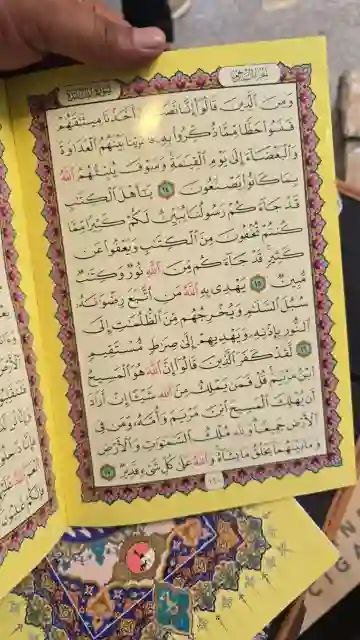 الجزء السادس
سورة المائدة
وَمِنَ الَّذِينَ قَالُوا إِنَّا نَصَارَىٰ أَخَذْنَا مِيثَاقَهُمْ
فَنَسُوا حَظًّا مِمَّا ذُكِّرُوا بِهِ فَأَغْرَيْنَا بَيْنَهُمُ الْعَدَاوَةَ
وَالْبَغْضَاءَ إِلَىٰ يَوْمِ الْقِيٰمَةِ وَسَوْفَ يُنَبِّئُهُمُ اللَّهُ
بِمَا كَانُوا يَصْنَعُونَ ﴿١٤﴾ يَا أَهْلَ الْكِتَابِ
قَدْ جَاءَكُمْ رَسُولُنَا يُبَيِّنُ لَكُمْ كَثِيرًا مِمَّا
كُنْتُمْ تُخْفُونَ مِنَ الْكِتَابِ وَيَعْفُو عَنْ
كَثِيرٍ قَدْ جَاءَكُمْ مِنَ اللَّهِ نُورٌ وَكِتَابٌ
مُبِينٌ ﴿١٥﴾ يَهْدِي بِهِ اللَّهُ مَنِ اتَّبَعَ رِضْوَانَهُ
سُبُلَ السَّلَامِ وَيُخْرِجُهُمْ مِنَ الظُّلُمَاتِ إِلَى
النُّورِ بِإِذْنِهِ وَيَهْدِيهِمْ إِلَىٰ صِرَاطٍ مُسْتَقِيمٍ
﴿١٦﴾ لَقَدْ كَفَرَ الَّذِينَ قَالُوا إِنَّ اللَّهَ هُوَ الْمَسِيحُ
ابْنُ مَرْيَمَ قُلْ فَمَنْ يَمْلِكُ مِنَ اللَّهِ شَيْئًا إِنْ أَرَادَ
أَنْ يُهْلِكَ الْمَسِيحَ ابْنَ مَرْيَمَ وَأُمَّهُ وَمَنْ فِي
الْأَرْضِ جَمِيعًا وَلِلَّهِ مُلْكُ السَّمٰوَاتِ وَالْأَرْضِ
وَمَا بَيْنَهُمَا يَخْلُقُ مَا يَشَاءُ وَاللَّهُ عَلَىٰ كُلِّ شَيْءٍ قَدِيرٌ ﴿١٧﴾